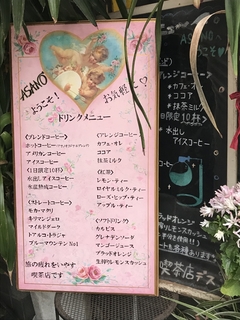 ASANO
ようこそ!
お気軽に♡
ドリンクメニュー
<ブレンドコーヒー>
アメリカンコーヒー
アイスコーヒー
<1日限定10杯>
水出しアイスコーヒー
氷温熟成コーヒー
<ストレートコーヒー>
モカ・マタリ
キリマンジャロ
マイルドダーク
トアルコ・トラジャ
ブルーマウンテン No1
<アレンジコーヒー>
カフェ・オ・レ
ココア
抹茶ミルク
<紅茶>
レモン・ティー
ロイヤルミルク・ティー
ローズ・ヒップ・ティー
アップル・ティー
<ソフトドリンク>
カルピス
グレナデンソーダ
マンゴージュース
ブラッドオレンジ
生搾りレモンスカッシュ
旅の疲れをいやす
喫茶店です
ASANO
レンジコーヒー
カフェ・オ・レ
ココア
抹茶ミルク
限定10杯
水出し
アイスコーヒー
ッドオレンジ
レモンスカッシュ
喫茶店デス